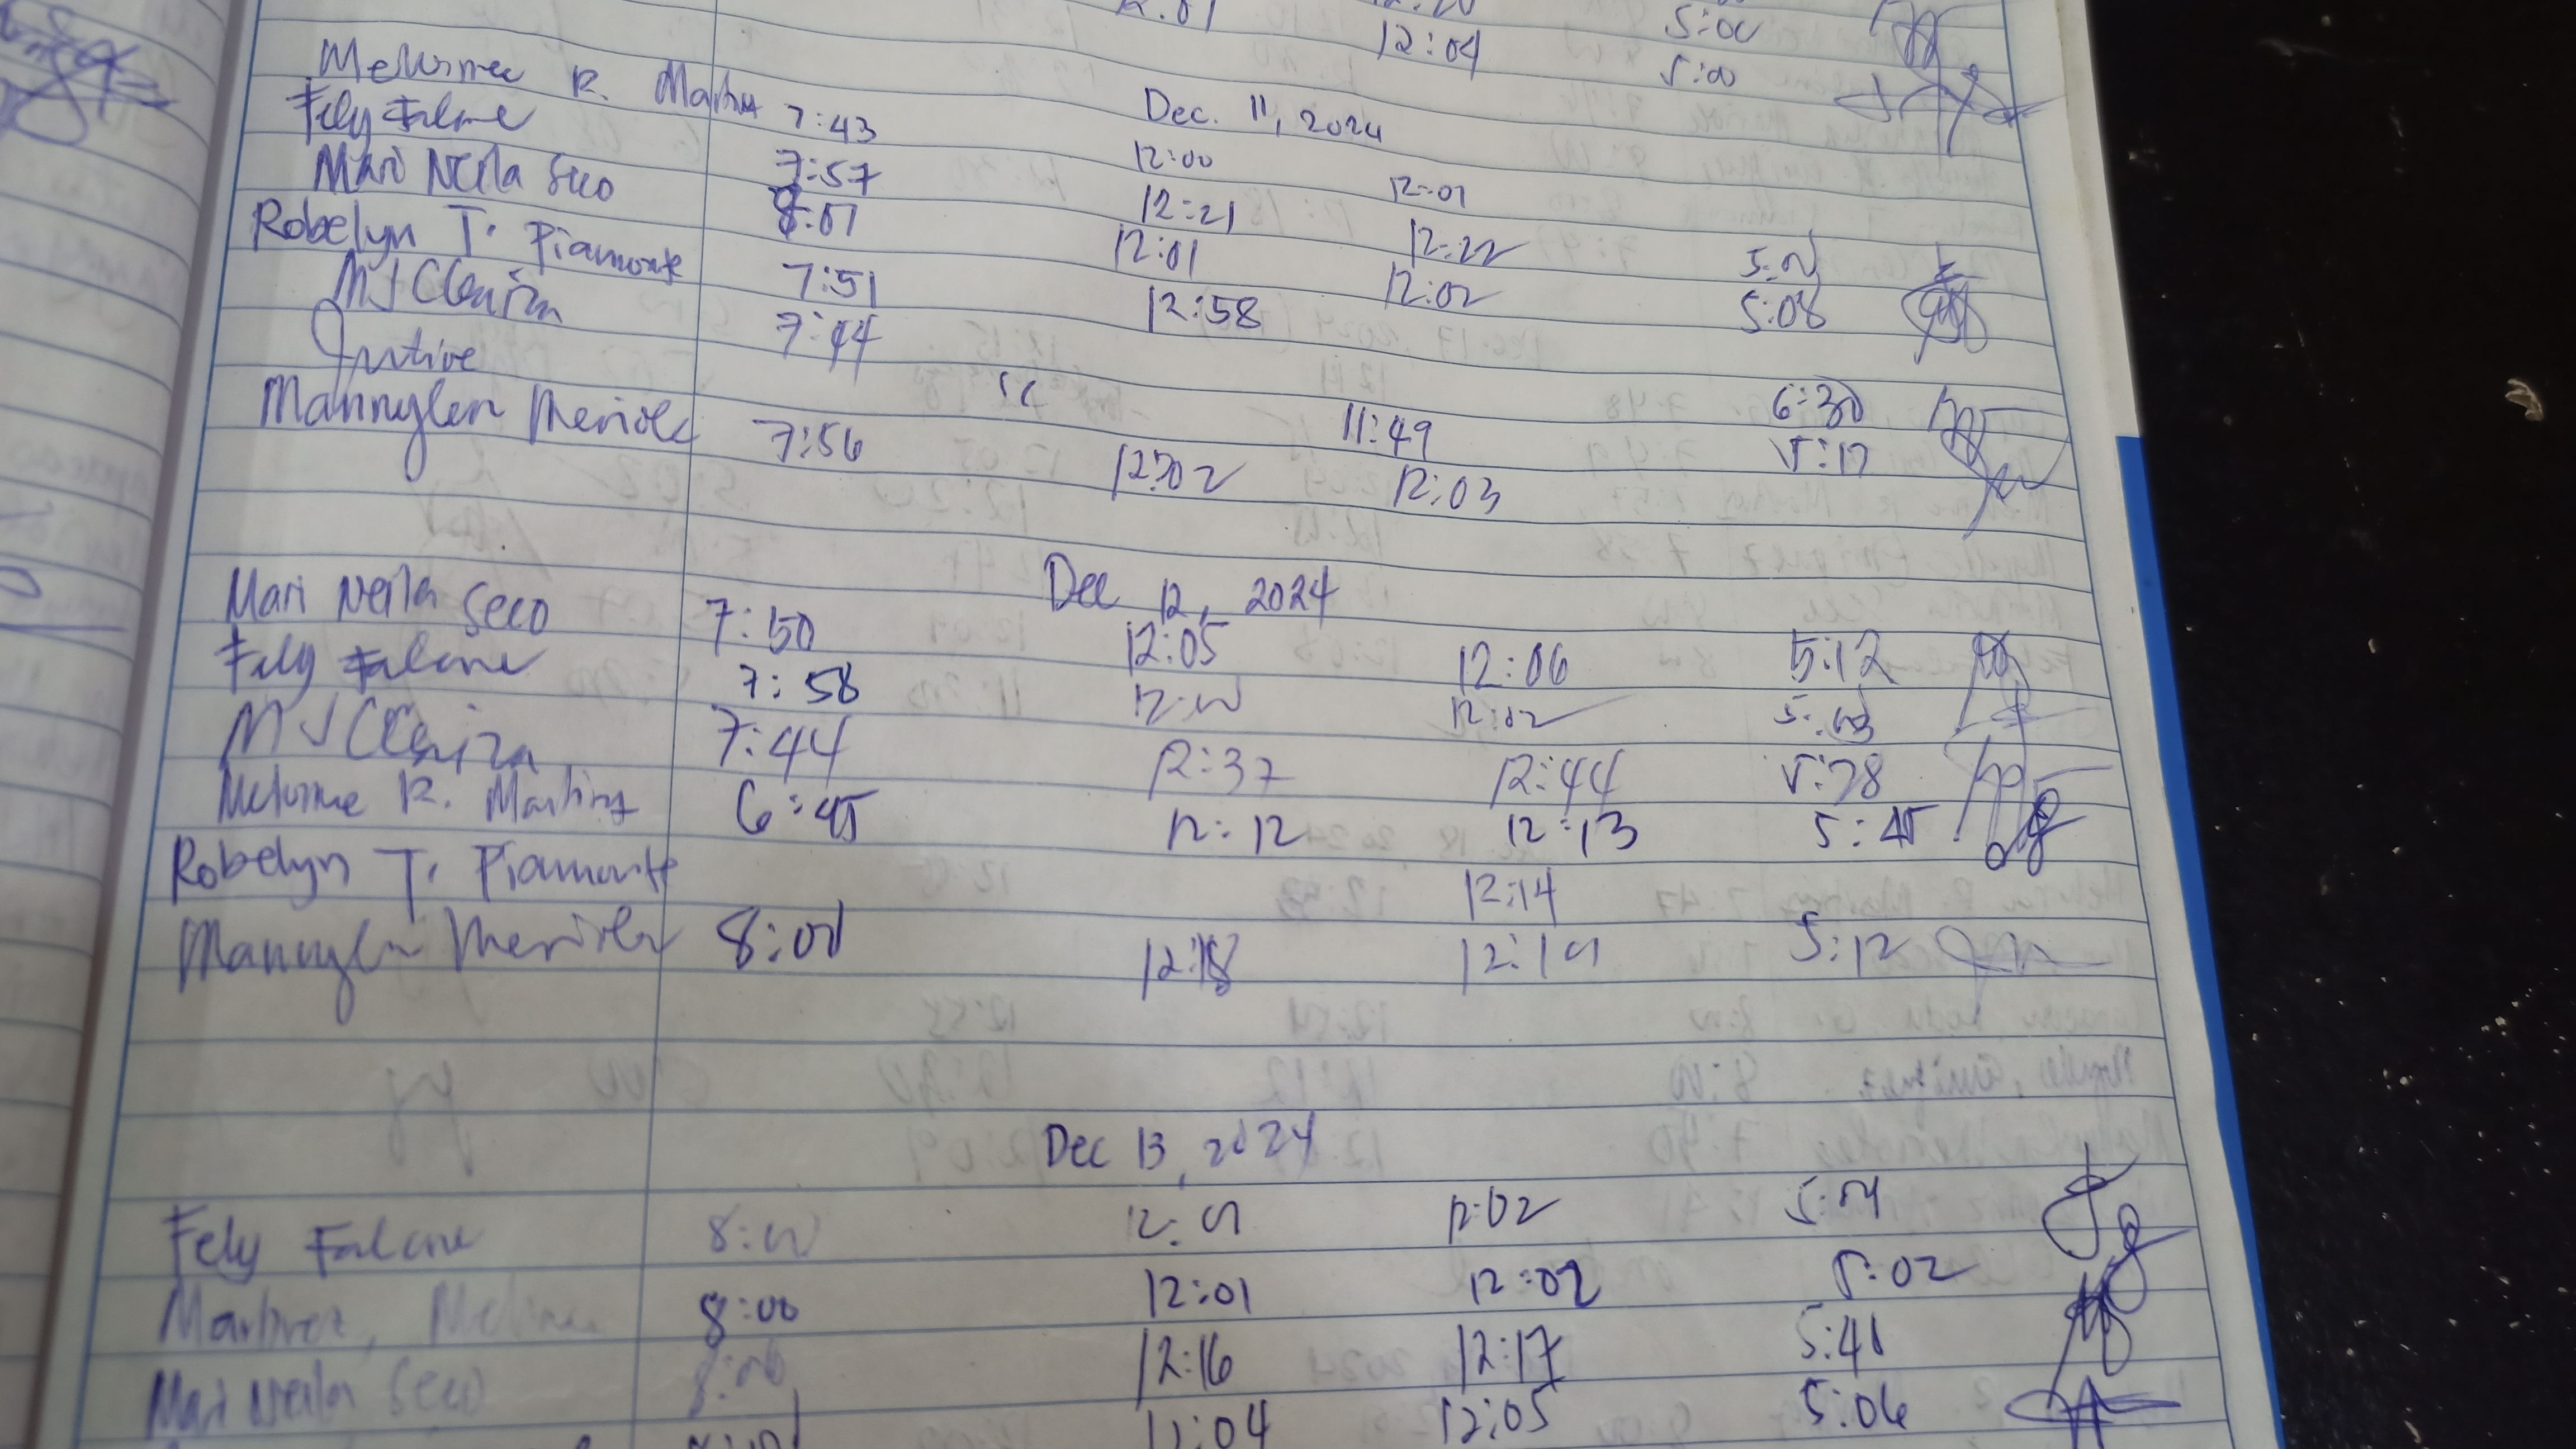 12:04 5:00
5:00
Dec. 11, 2024
Melvinne R. Martinez 7:43 12:00 12:01
Fely Falame 7:57 12:21 12:22 5:01
Mari Neila Seco 8:07 12:01 12:02 5:08
Robelyn T. Piamonte 7:51 12:58
MJ Cleniza 7:44 11:49 6:30
Mannylen Meriola 7:56 12:02 12:03 5:17
Dec 12, 2024
Mari Neila Seco 7:50 12:05 12:06 5:12
Fely Falame 7:58 12:00 12:02 5:03
MJ Cleniza 7:44 12:37 12:44 5:38
Melvinne R. Martinez 6:45 12:12 12:13 5:45
Robelyn T. Piamonte 12:14
Mannylen Meriola 8:01 12:18 12:19 5:12
Dec 13, 2024
Fely Falame 8:00 12:01 12:02 5:04
Martinez, Melvinne 8:00 12:01 12:02 5:02
Mari Neila Seco 8:06 12:16 12:17 5:41
12:04 12:05 5:06